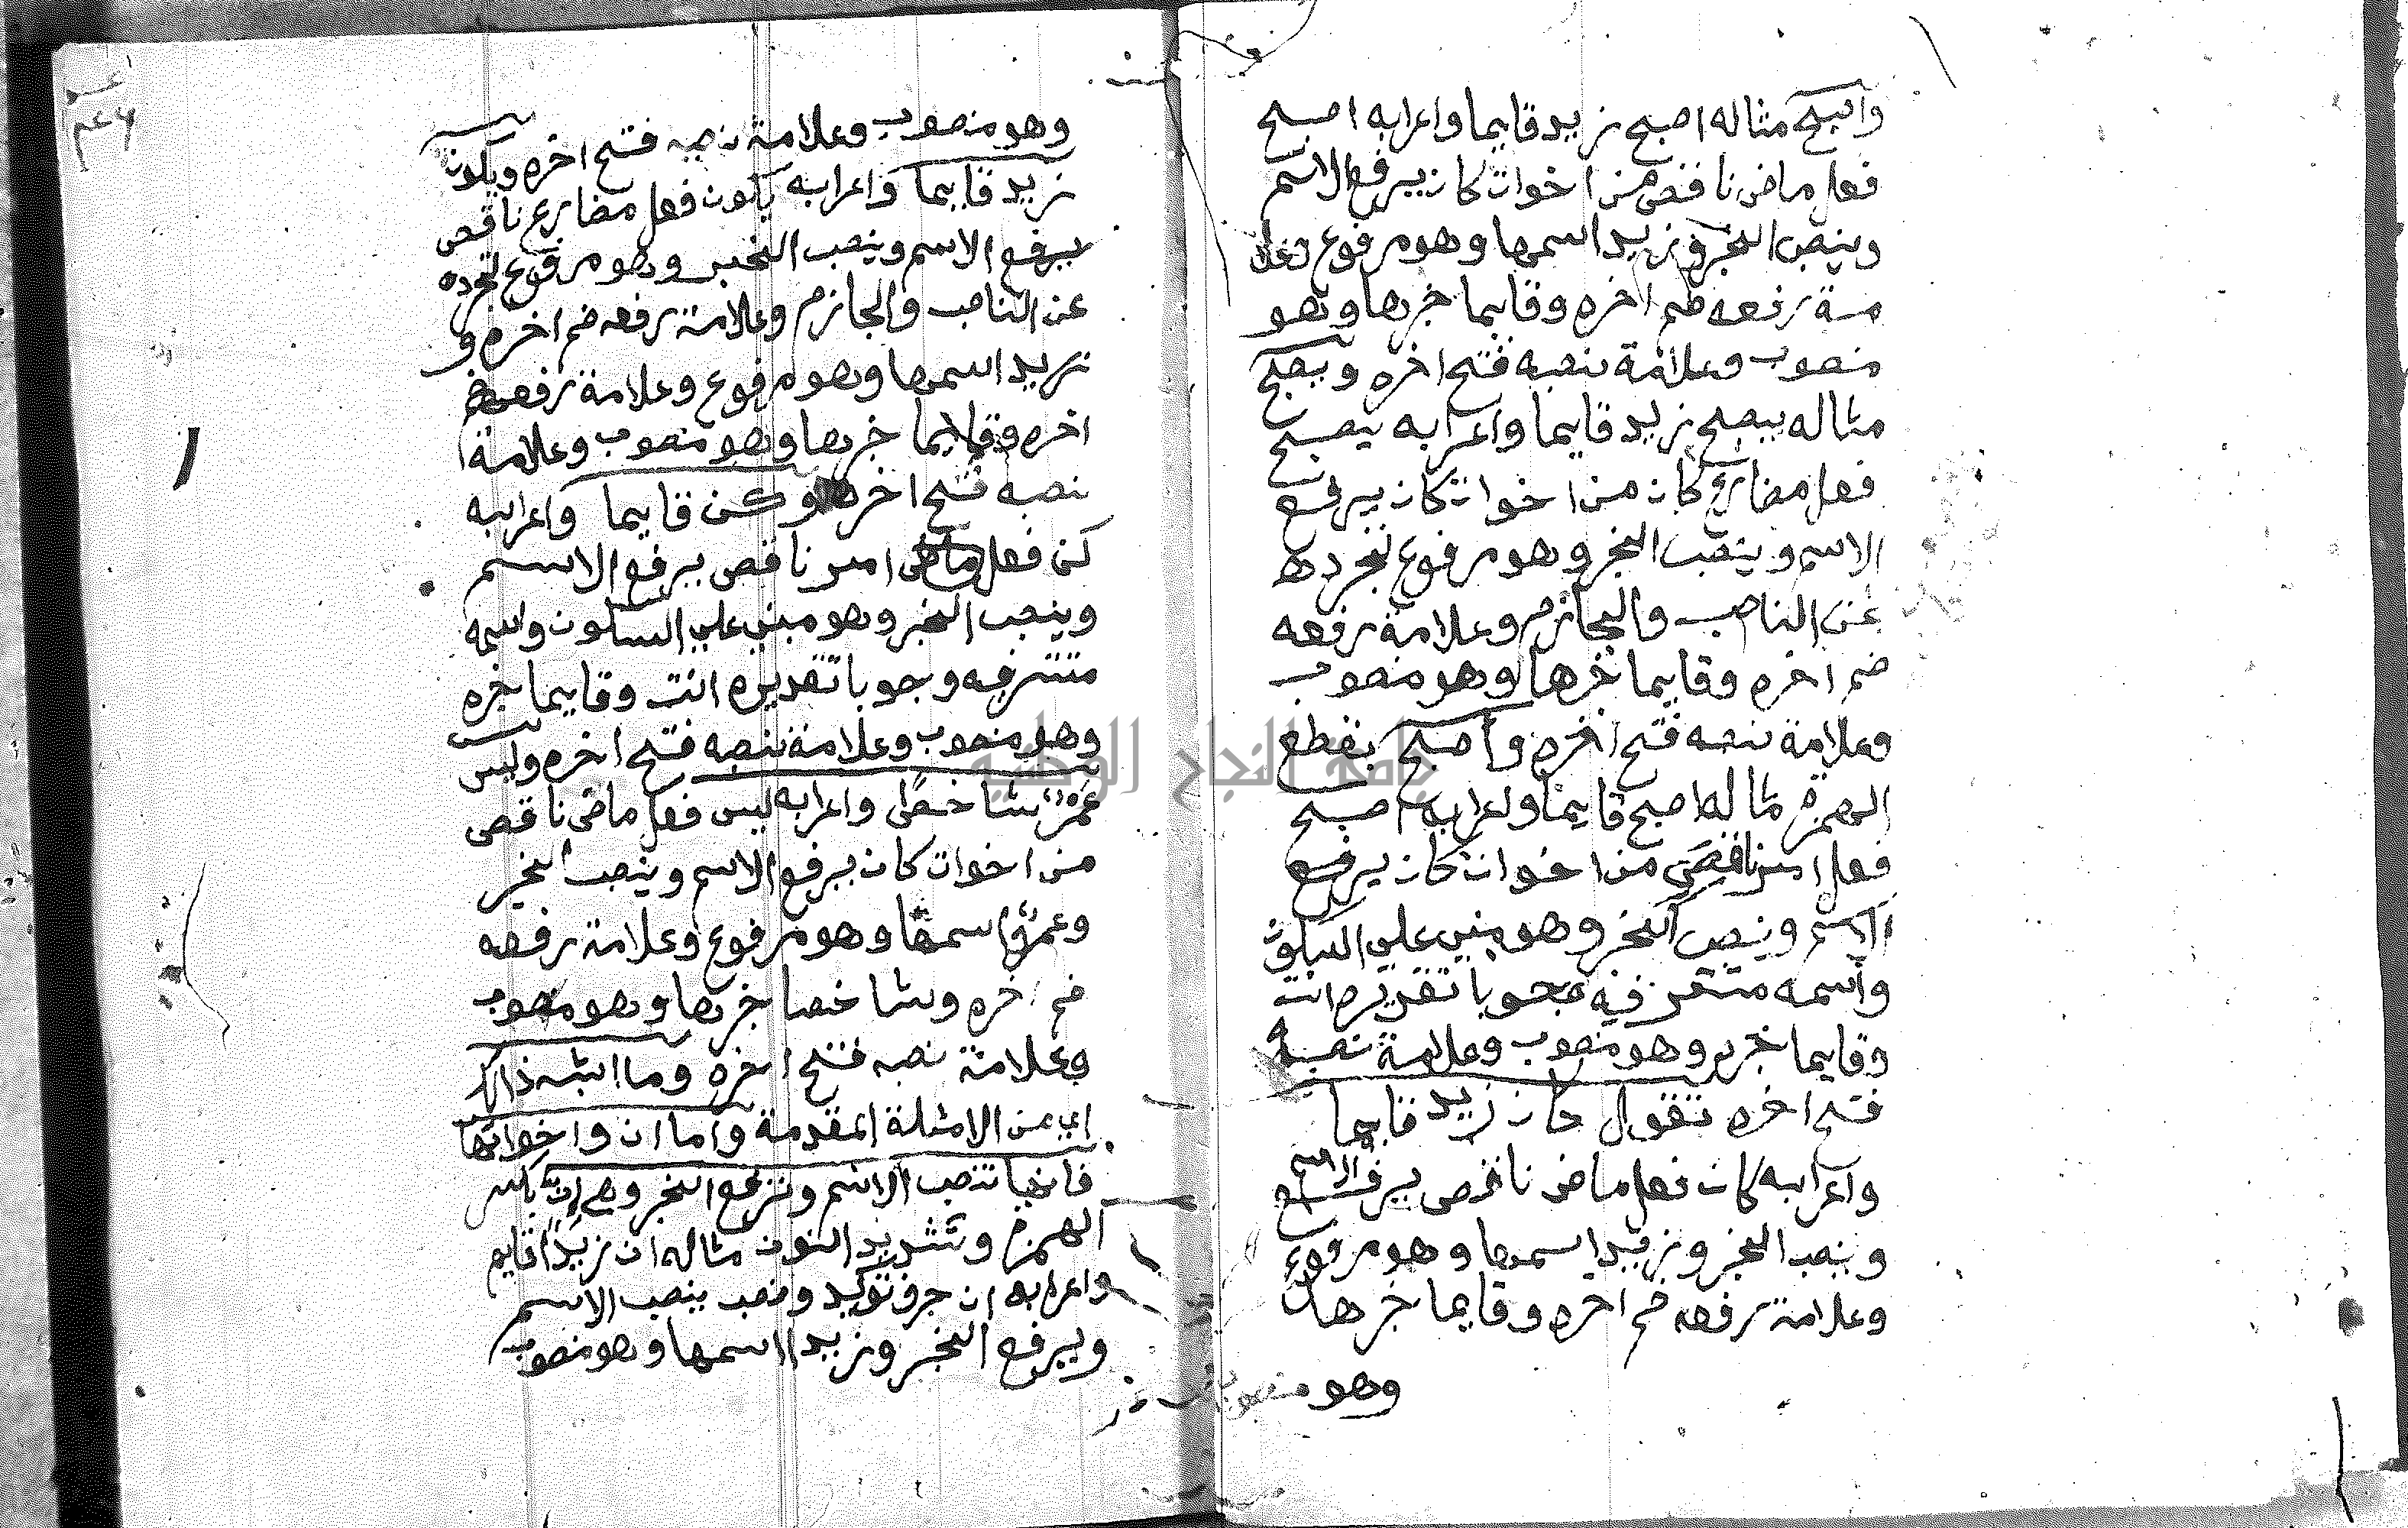 واصبح مثاله اصبح زيد قايما واعرابه اصبح
فعل ماض ناقص من اخوات كان يرفع الاسم
وينصب الخبر وزيد اسمها وهو مرفوع وعلا
مة رفعه ضم اخره وقايما خبرها وهو
منصوب وعلامة نصبه فتح اخره ويصبح
مثاله يصبح زيد قايما واعرابه يصبح
فعل مضارع كان من اخوات كان يرفع
الاسم وينصب الخبر وهو مرفوع لتجرده
عن الناصب والجازم وعلامة رفعه
ضم اخره وقايما خبرها وهو منصوب
وعلامة نصبه فتح اخره وأصبح بقطع
الهمزة مثاله اصبح قايما واعرابه اصبح
فعل امر ناقص من اخوات كان يرفع
الاسم وينصب الخبر وهو مبني علي السكون
واسمه مستتر فيه وجوبا تقديره انت
وقايما خبره وهو منصوب وعلامة نصبه
فتح اخره تقول كان زيد قايما
واعرابه كان فعل ماض ناقص يرفع الاسم
وينصب الخبر وزيد اسمها وهو مرفوع
وعلامة رفعه ضم اخره وقايما خبرها
وهو منصوب
وهو منصوب وعلامة نصبه فتح اخره ويكون
زيد قايما واعرابه يكون فعل مضارع ناقص
يرفع الاسم وينصب الخبر وهو مرفوع لتجرده
عن الناصب والجازم وعلامة رفعه ضم اخره و
زيد اسمها وهو مرفوع وعلامة رفعه ضم
اخره وقايما خبرها وهو منصوب وعلامة
نصبه فتح اخره وكن قايما واعرابه
كن فعل امر ناقص يرفع الاسم
وينصب الخبر وهو مبني علي السكون واسمه
مستتر فيه وجوبا تقديره انت وقايما خبره
وهو منصوب وعلامة نصبه فتح اخره وليس
عمرٌو شاخصًا واعرابه ليس فعل ماض ناقص
من اخوات كان يرفع الاسم وينصب الخبر
وعمرٌو اسمها وهو مرفوع وعلامة رفعه
ضم اخره وشاخصا خبرها وهو منصوب
وعلامة نصبه فتح اخره وما اشبه ذلك
اي من الامثلة المقدمة واما ان واخواتها
فانها تنصب الاسم وترفع الخبر وهي إنّ بكسر
الهمزة وتشديد النون مثاله ان زيدًا قايم
واعرابه ان حرف توكيد ونصب ينصب الاسم
ويرفع الخبر وزيدا اسمها وهو منصوب
جامعة النجاح الوطنية